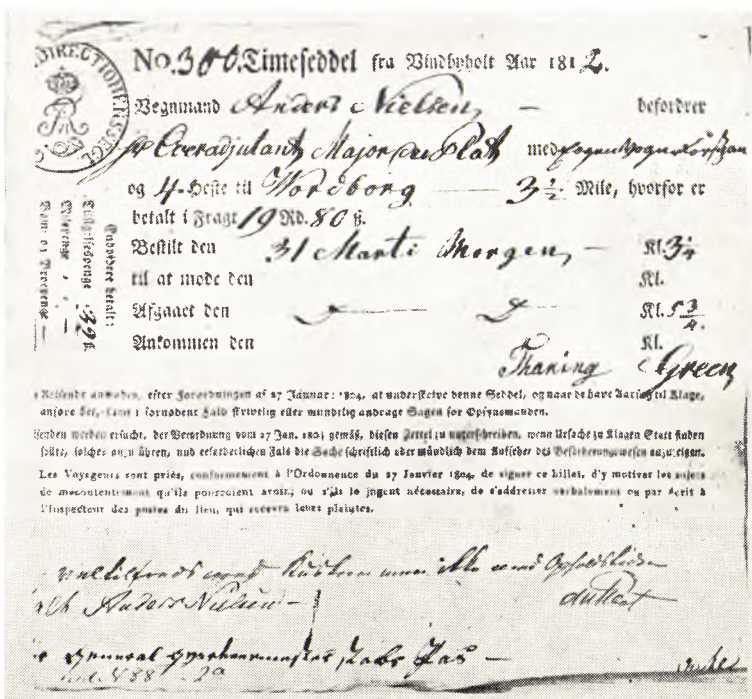 DIRECTIONENS SEGL
No. 300. Timeseddel fra Vindbyholt Aar 1812.
Vegnmand Anders Nielsen, — befordrer
Overadjutant Major du Plat med egen Vogn
og 4 Heste til Wordborg — 3 1/2 Mile, hvorfor er
betalt i Fragt 19 Rd. 80 ß.
Bestilt den 31 Marti Morgen, — Kl. 3 1/4
til at møde den Kl.
Afgaaet den D — D Kl. 5 3/4.
Ankommen den Kl.
Thaning Green
Endvidere betalt:
Tillyselsespenge 39 ß.
Bom- og Broepenge —
Reisende anmodes, efter Forordningen af 27 Januar: 1804, at underskrive denne Seddel, og naar de have Aarsag til Klage,
anføre den, samt i fornødent Fald skrivtlig eller mundtlig andrage Sagen for Opsynsmanden.
werden ersucht, der Verordnung vom 27 Jan. 1804 gemäß, diesen Zettel zu unterschreiben, wenn Ursache zu Klagen Statt finden
sollte, solches anzuführen, und erforderlichen Fals die Sache schriftlich oder mündlich dem Aufseher des Beförderungswesen anzuzeigen.
Les Voyageurs sont priés, conformement à l'Ordonnence du 27 Janvier 1804, de signer ce billet, d'y motiver les sujets
de mecontentement qu'ils pourroient avoir, ou s'ils le jugent nécessaire, de s'addresser verbalement ou par écrit à
l'Inspecteur des postes du lieu, qui recevra leurs plaintes.
vel tilfreds med Kudsken men ikke med Opholdstiden
Anders Nielsen — duPlat
General Pas —